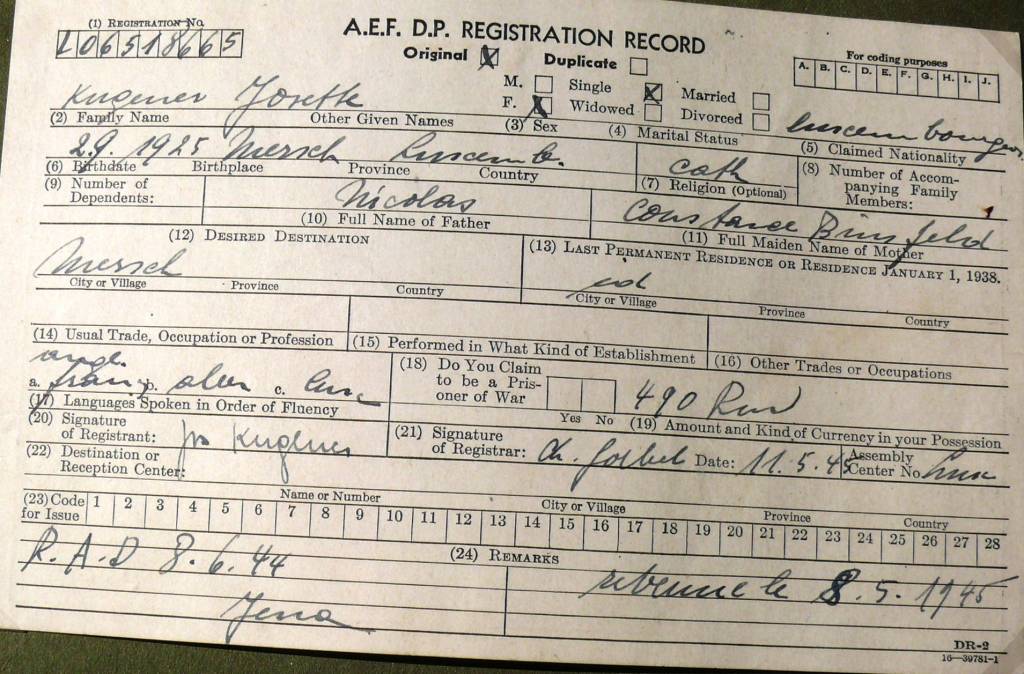 (1) REGISTRATION No.
L06518665
A.E.F. D.P. REGISTRATION RECORD
Original X Duplicate
For coding purposes
A. B. C. D. E. F. G. H. I. J.
M. Single X Married
F. X Widowed Divorced
Kugener Josette
luxembourgeois
(2) Family Name Other Given Names (3) Sex (4) Marital Status (5) Claimed Nationality
2.9. 1925 Mersch Luxemb. cath
(6) Birthdate Birthplace Province Country (7) Religion (Optional) (8) Number of Accompanying Family Members:
(9) Number of Dependents:
Nicolas Constance Binsfeld
(10) Full Name of Father (11) Full Maiden Name of Mother
(12) DESIRED DESTINATION (13) LAST PERMANENT RESIDENCE OR RESIDENCE JANUARY 1, 1938.
Mersch id
City or Village Province Country City or Village Province Country
(14) Usual Trade, Occupation or Profession (15) Performed in What Kind of Establishment (16) Other Trades or Occupations
angl.
a. franç b. c. lux
(17) Languages Spoken in Order of Fluency
(18) Do You Claim to be a Prisoner of War
Yes No
490 RM
(19) Amount and Kind of Currency in your Possession
(20) Signature of Registrant: Jos Kugener
(21) Signature of Registrar: Date: 11.5.45 Assembly Center No. Lux
(22) Destination or Reception Center:
Name or Number City or Village Province Country
(23) Code for Issue 1 2 3 4 5 6 7 8 9 10 11 12 13 14 15 16 17 18 19 20 21 22 23 24 25 26 27 28
(24) REMARKS
R.A.D 8.6.44
Jena
le 8.5.1945
DR-2
16—39781-1